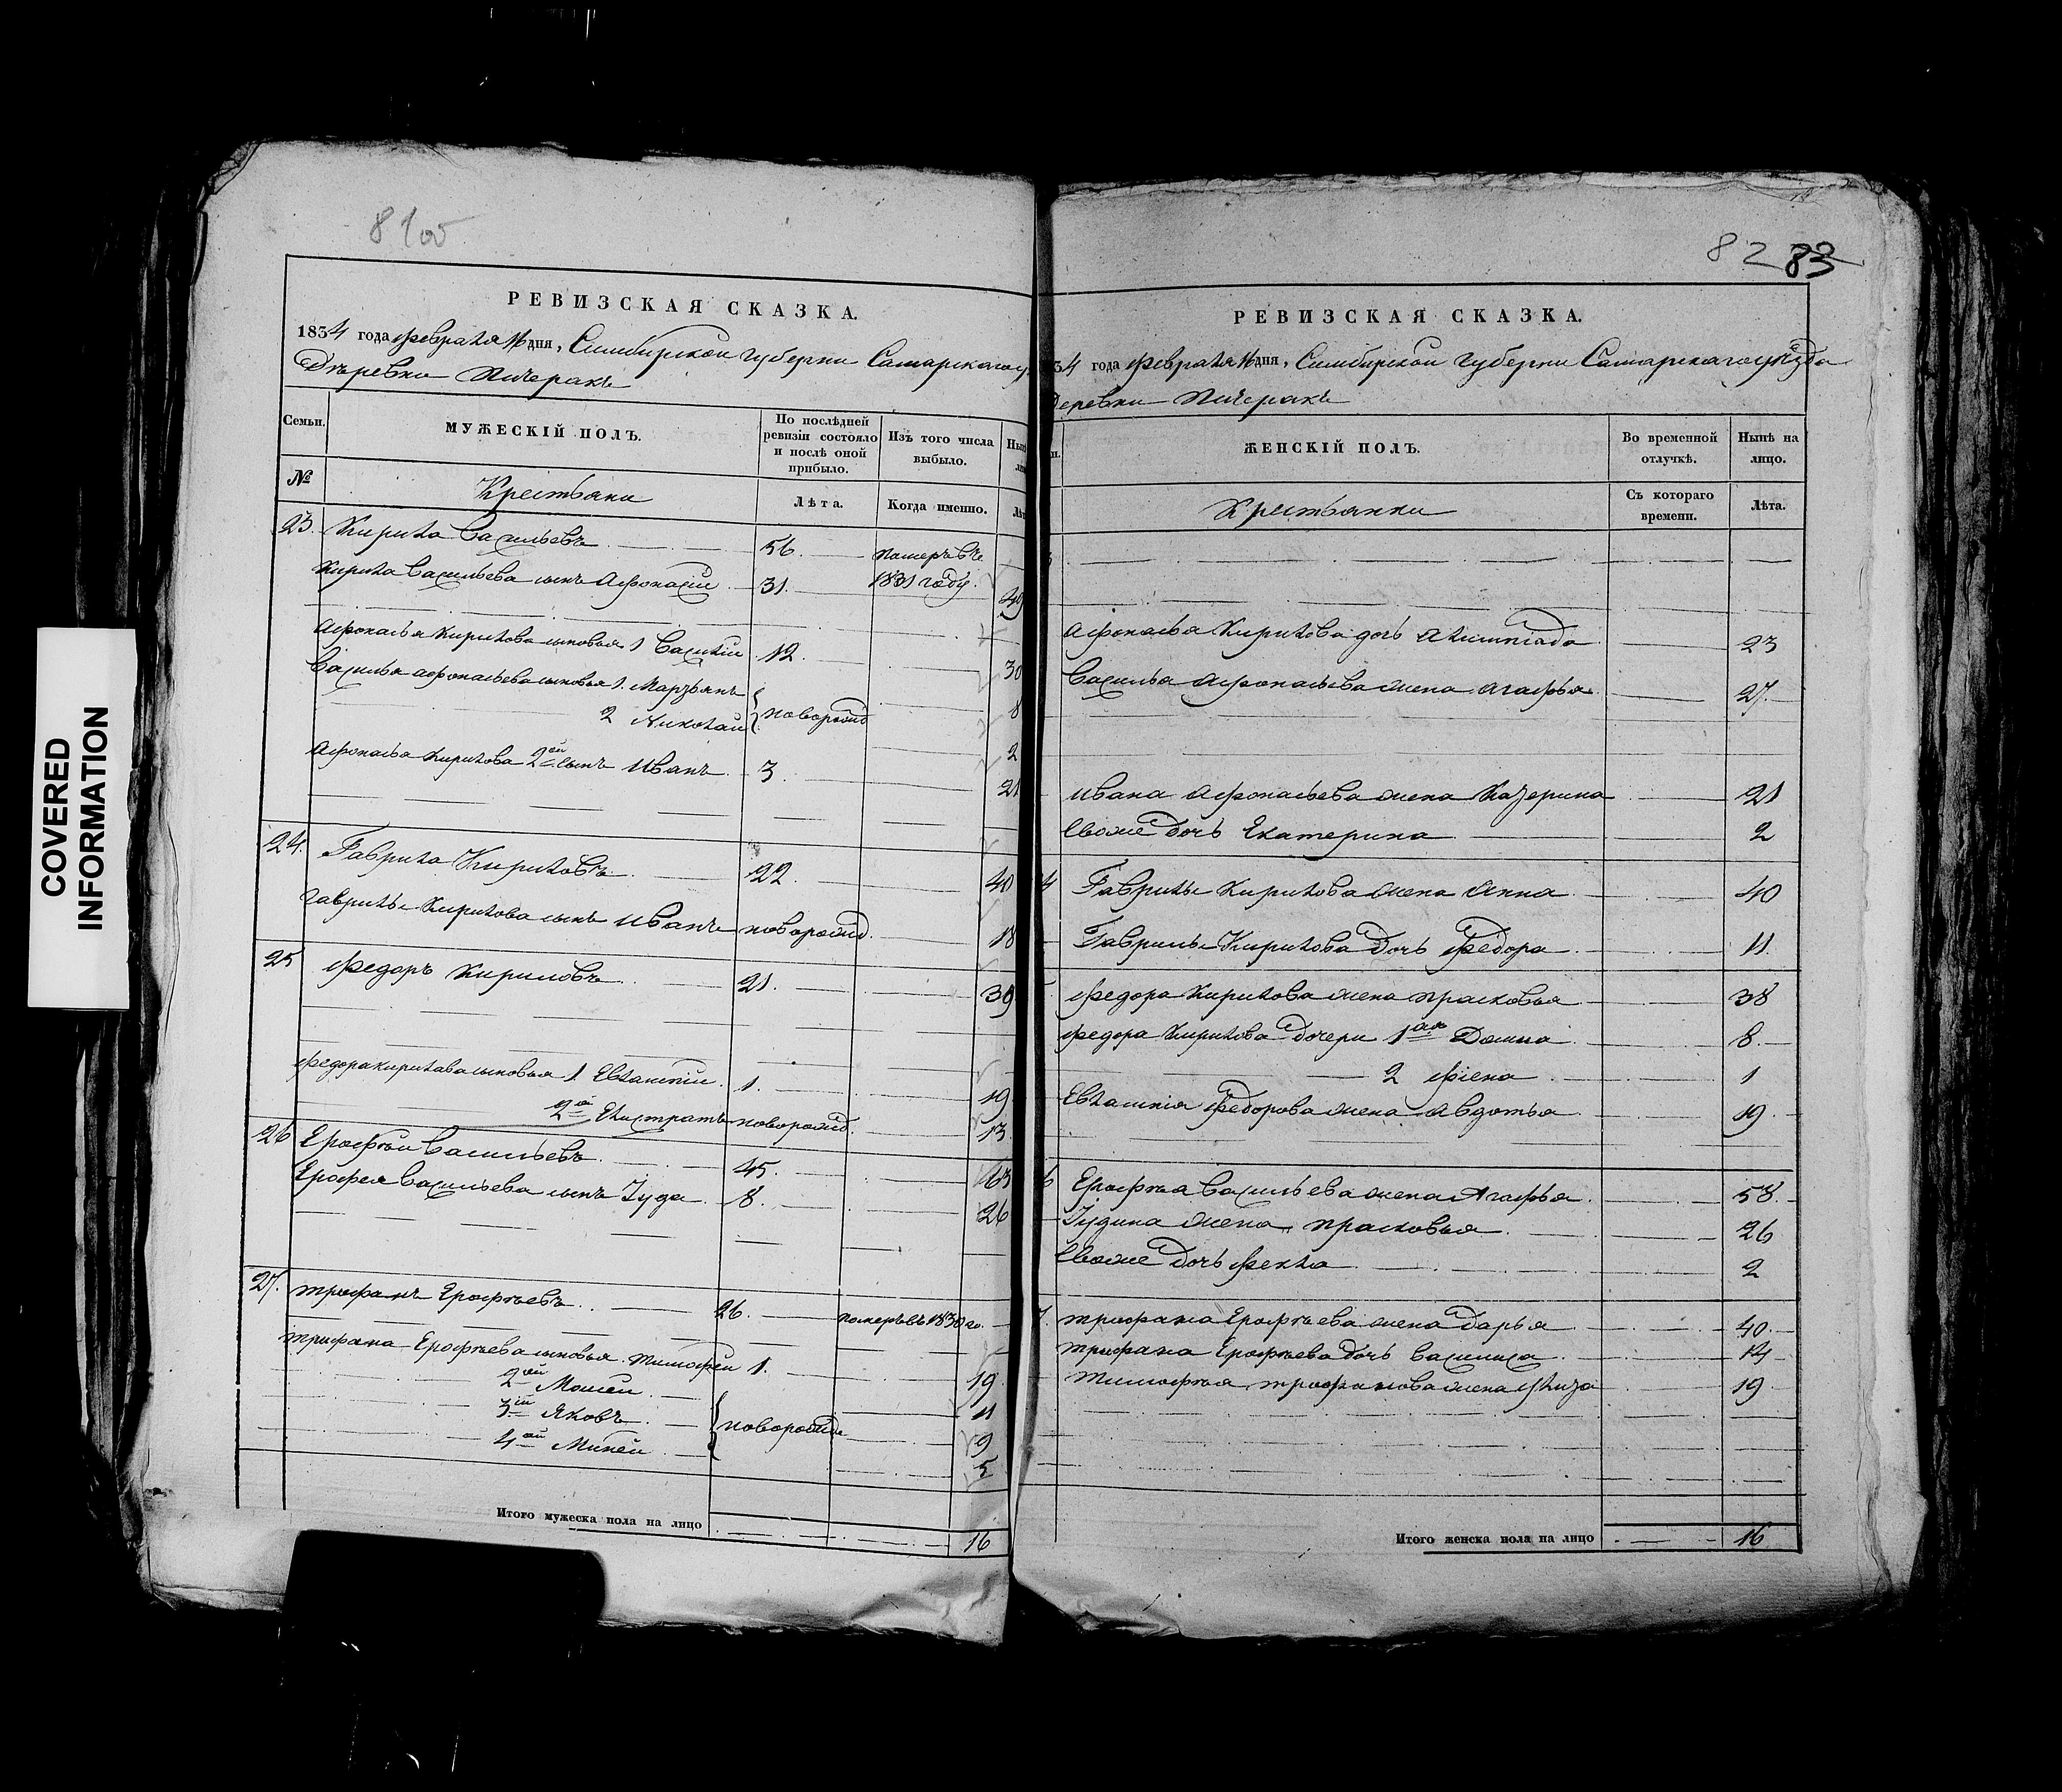 COVERED
INFORMATION
8 100
РЕВИЗСКАЯ СКАЗКА.
1834 года февраля дня, Симбирской губернии Самарскаго
Деревни
Семьи.
МУЖЕСКІЙ ПОЛЪ.
По послѣдней ревизіи состояло и послѣ оной прибыло.
Изъ того числа выбыло.
№
Крестьяни
Лѣта.
Когда именно.
23. Кирила Васильевъ 56. померъ въ
Кирила Васильева сынъ Афонасій 31. 1831 году. 49
Афонасья Кирилова сыновья 1 Василій 12. 30
Василья Афонасьева сыновья 1. Маркъянъ 8
2 Николай новорожд 2
Афонасья Кирилова 2ой сынъ Иванъ 3. 21
24. Гаврила Кириловъ 22. 40
Гаврилы Кирилова сынъ Иванъ новорожд. 18
25 Федоръ Кириловъ 21. 39
Федора Кирилова сыновья 1. Евлампій 1. 19
2й Елистратъ новорожд. 13
26 Ерофѣй Васильевъ 45. 63
Ерофея Васильева сынъ Іуда 8. 26
27. Трофанъ Ерофѣевъ 26. померъ въ 1830 го.
Трифана Ерофѣева сыновья Тимофѣй 1. 19
2ой Мосѣй 11
3ій Яковъ новорожд 9
4ой Минѣй 5
Итого мужеска пола на лицо 16
82 83
РЕВИЗСКАЯ СКАЗКА.
34 года февраля дня, Симбирской губерни Самарскаго уѣзда
Деревни
ЖЕНСКІЙ ПОЛЪ.
Во временной отлучкѣ.
Нынѣ на лицо.
Крестьянки
Съ котораго времени.
Лѣта.
Афонасья Кирилова дочь Алимпіада 23
Василья Афонасьева жена Агафья 27.
Ивана Афонасьева жена Катерина 21
Евоже дочь Екатерина 2
4 Гаврилы Кирилова жена Анна 40
Гаврилы Кирилова дочь Федора 11.
Федора Кирилова жена Прасковья 38
Федора Кирилова дочери 1ая Домна 8.
2 Фіена 1
Евлампія Федорова жена Авдотья 19
6 Ерофѣя Васильева жена Агафья 58.
Іудина жена Прасковья 26
Евоже дочь Фекла 2
7. Трофана Ерофѣева жена Дарья 40.
Трифана Ерофѣева дочь Василиса 14
Тимофѣя Трофанова жена Улиза 19
Итого женска пола на лицо 16